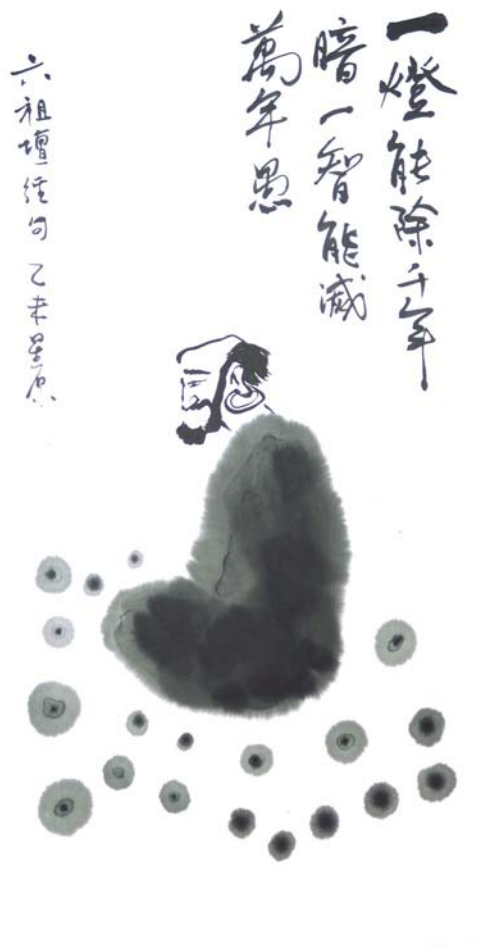 一燈能除千年
暗一智能滅
萬年愚
六祖壇經句 乙未星原